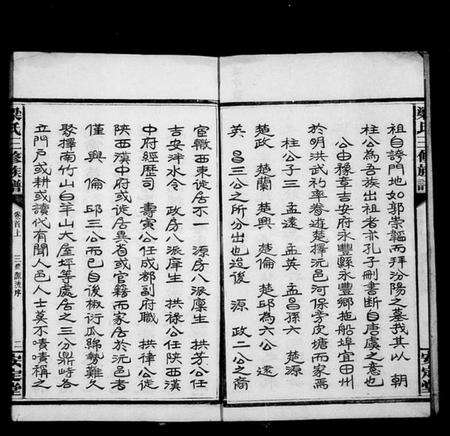 梁氏三修族譜
祖自誇門地如郭崇韜而拜汾陽之墓我其以 朝
柱公為吾族出祖者亦孔子刪書斷自唐虞之意也
公由豫章吉安府永豐縣永豐鄉拖船埠宜田州
於明洪武 年 遊楚擇沅邑河保旁皮塘而家焉
柱公子三 孟遠 孟英 孟昌孫六 楚源
楚政 楚蘭 楚興 楚倫 楚邱為六公 遠
英 昌三公之所分出也迨後 源 政二公之裔
安定堂
官轍西東徙居不一 源房八派廩生 拱芳公任
吉安泮水令 政房八派廩生 拱祿公任陝西漢
中府經歷司 壽寅公任成都副府職 拱律公徙
陝西漢中府或徙居異省或官籍而家居於沅邑者
僅 興 倫 邱三公而已自後椒衍瓜綿勢難久
聚擇南竹山白羊山大屋坪等處居之三分鼎峙各
立門戶或耕或讀代有聞人邑人士莫不嘖嘖稱之
梁氏三修族譜
卷首上
三修源流序
二
安定堂